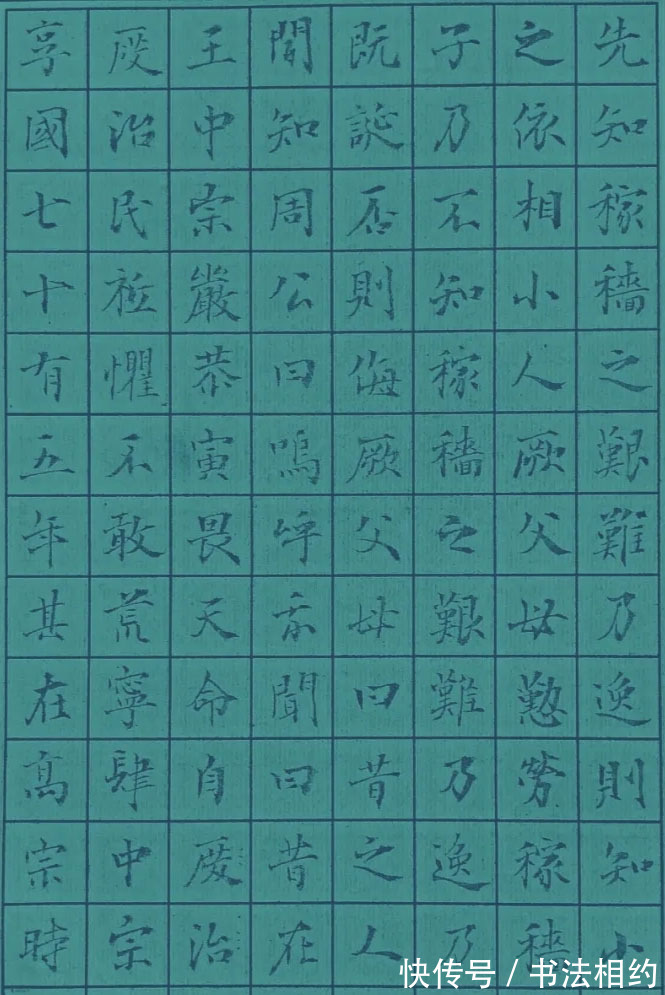 先知稼穡之艱難乃逸則知小
之依相小人厥父母懃勞稼穡
子乃不知稼穡之艱難乃逸乃
既誕否則侮厥父母曰昔之人
聞知周公曰嗚呼我聞曰昔在
王中宗嚴恭寅畏天命自度治
度治民祗懼不敢荒寧肆中宗
享國七十有五年其在高宗時
快传号/书法相约